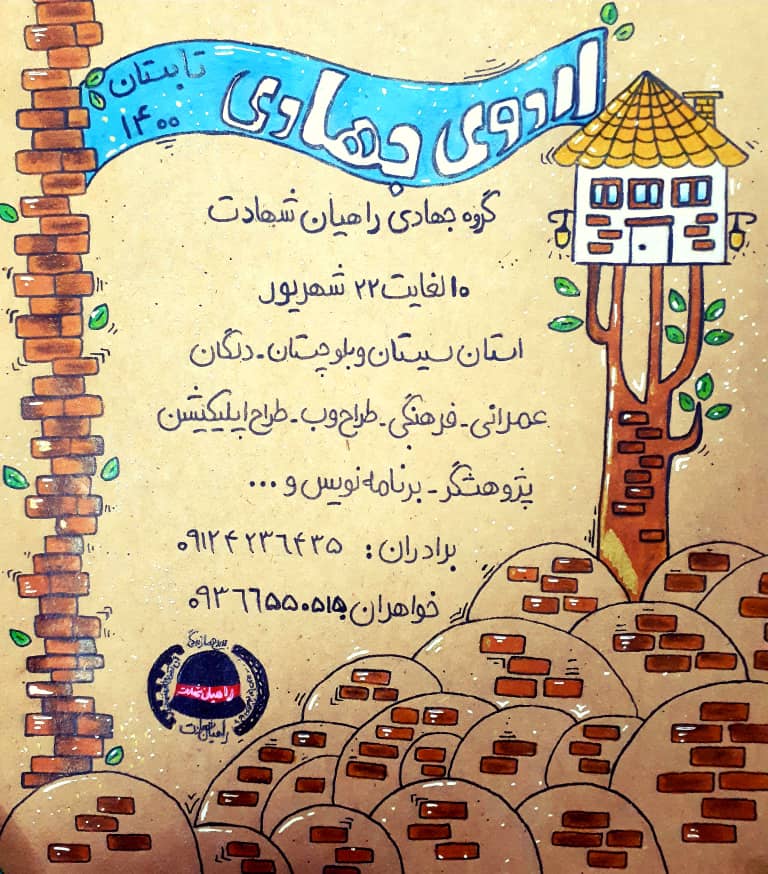 اردوی جهادی
تابستان
۱۴۰۰
گروه جهادی راهیان شهادت
۱۰ لغایت ۲۲ شهریور
استان سیستان و بلوچستان - دلگان
عمرانی - فرهنگی - طراح وب - طراح اپلیکیشن
پژوهشگر - برنامه نویس و ...
برادران: ۰۹۱۲۴۲۳۶۴۳۵
خواهران: ۰۹۳۶۶۵۵۰۵۱۵
راهیان شهادت
راهیان شهادت